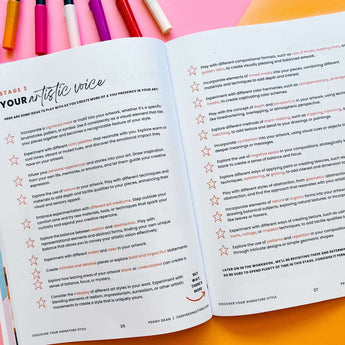 STAGE 3
YOUR artistic voice
HERE ARE SOME IDEAS TO PLAY WITH AS YOU CREATE MORE OF A YOU PRESENCE IN YOUR ART.
Incorporate a signature mark or motif into your artwork, whether it's a specific
brushstroke, pattern, or symbol. Use it consistently as a visual element that ties
your pieces together and becomes a recognizable feature of your style.
Experiment with different color palettes that resonate with you. Explore warm or
cool tones, vibrant or muted hues, and discover the emotional impact they have
on your artwork.
Infuse your personal experiences and stories into your art. Draw inspiration
from your own life, memories, or emotions, and let them guide your creative
expression.
Explore the use of texture in your artwork. Play with different techniques and
materials to add depth and tactile qualities to your pieces, enhancing their
visual and sensory appeal.
Embrace experimentation with different art mediums. Step outside your
comfort zone and try new materials, tools, or techniques that spark your
curiosity and expand your creative repertoire.
Explore the balance between realism and abstraction. Play with
representational elements and distort them, finding your own unique
balance that allows you to convey your artistic vision effectively.
Experiment with different scales and sizes in your artwork.
Create intimate and detailed pieces or explore bold and impactful statements.
Explore how leaving areas of your artwork blank or understated can create a
sense of balance, focus, or mystery.
Consider the interplay of different art styles in your work. Experiment with
blending elements of realism, impressionism, surrealism, or other artistic
movements to create a style that is uniquely yours.
BUT
WAIT,
THERE'S
MORE
DISCOVER YOUR SIGNATURE STYLE
36
PEGGY DEAN
Play with different compositional formats, such as rule of thirds, leading lines, or
golden ratio, to create visually pleasing and balanced artwork.
Incorporate elements of mixed media into your pieces, combining different
materials and techniques to add depth and interest.
Experiment with different color harmonies, such as
to create captivating color schemes.
Play with the concept of depth and perspective in your artwork, using techniques
like foreshortening, overlapping, or atmospheric perspective.
Explore
to add texture and detail to your drawings or paintings.
Incorporate symbolism into your artwork, using visual cues or objects
deeper meanings or messages.
Explore the use of negative space in your compositions, strategically
blank to create a sense of balance and focus.
Explore different ways of applying paint or creating textures, such as
to add interest
Play with different styles of abstraction, from geometric abstraction
abstraction, and find the approach that resonates with your
Incorporate elements of nature or organic forms into your artwork,
drawing botanical subjects, exploring natural textures, or incorporating
like leaves or flowers.
Experiment with different ways of creating texture, such as using
or impasto techniques, to add tactile qualities
Explore the use of patterns and repetition in your artwork,
through intricate designs or simple geometric shapes.
LATER ON IN THE WORKBOOK, WE'LL BE REVISITING THESE AND
SO BE SURE TO SPEND PLENTY OF TIME IN THIS STAGE. CONSIDER IT
37
DISCOVER YOUR